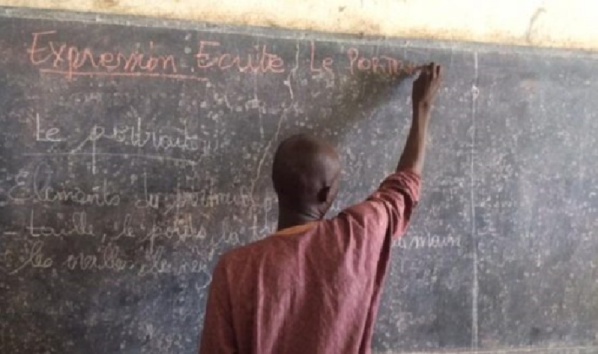 Expression Ecrite Le Portra
Le portrait
Elements du portrait
- taille le poids, la
les oreilles, le nez